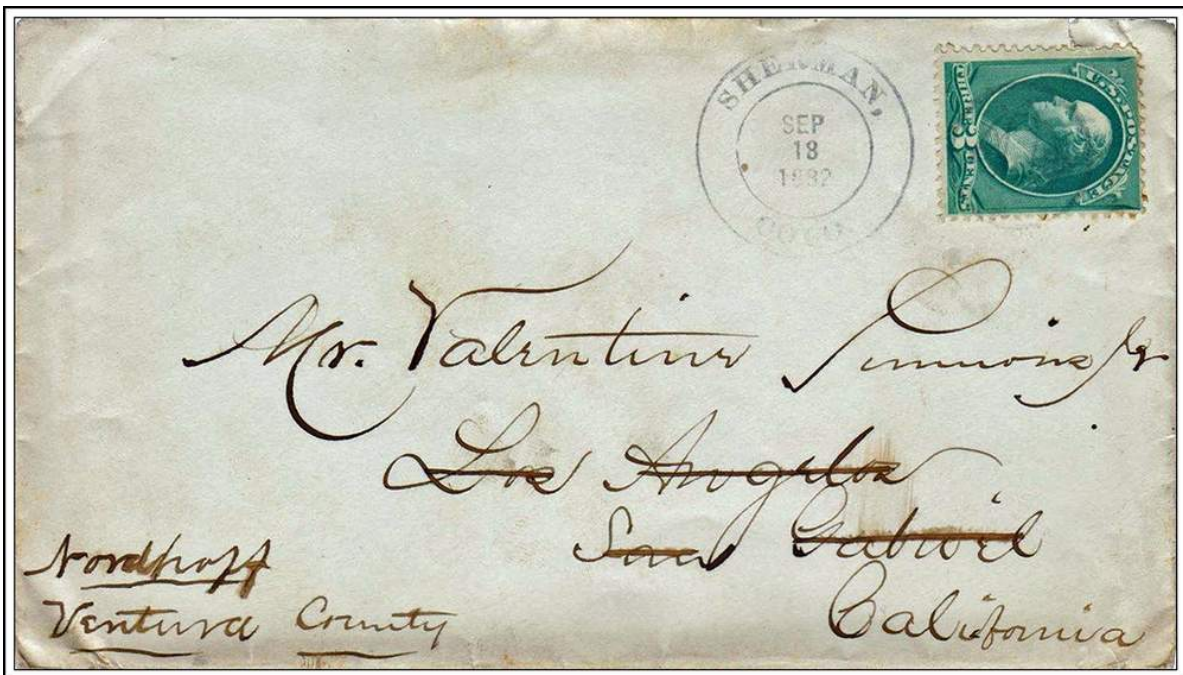 SHERMAN,
SEP
18
1882
COLO.
U.S. POSTAGE
THREE 3 CENTS
Mr. Valentine Simmons Jr.
Los Angelos
San Gabriel
California
Nordhoff
Ventura County